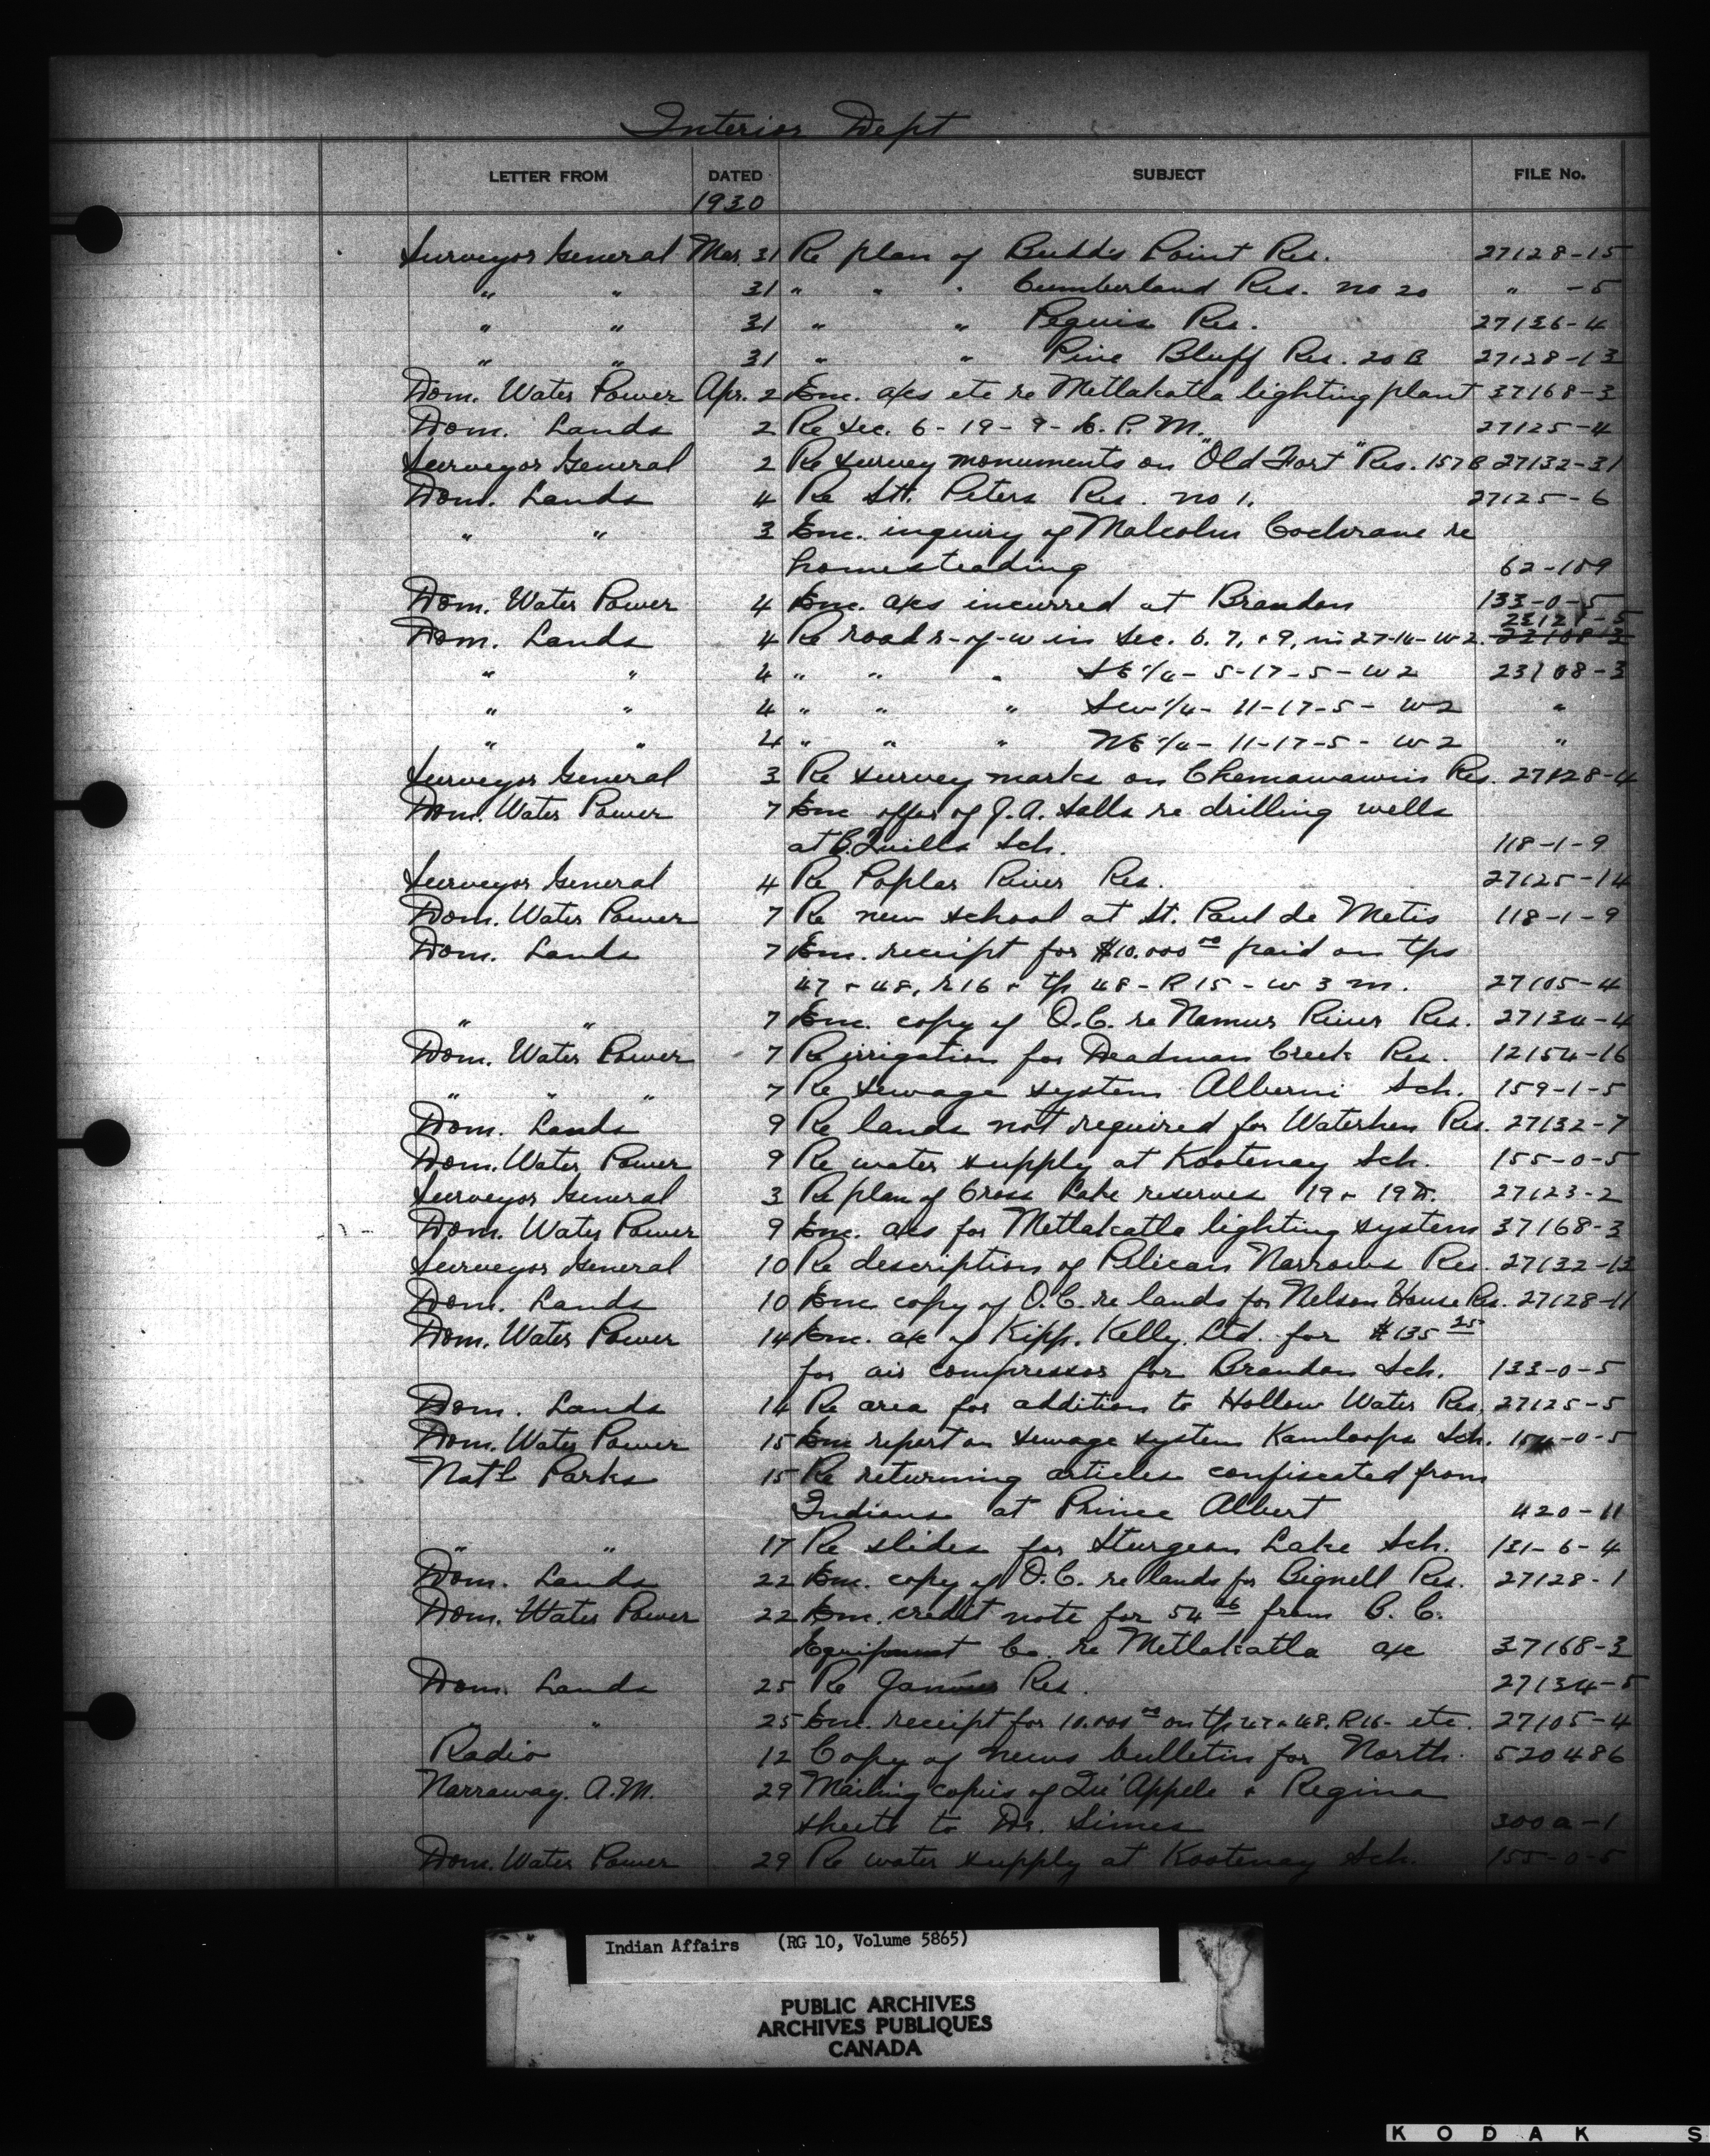 Interior Dept
LETTER FROM DATED SUBJECT FILE No.
1930
Surveyor General Mar. 31 Re plan of Budds Point Res. 27128-15
" " 31 " " " Cumberland Res. no 20 " -5
" " 31 " " Peguis Res. 27136-4
" " 31 " " Pine Bluff Res. 20B 27128-13
Dom. Water Power Apr. 2 Enc. a/cs etc re Metlakatla lighting plant 37168-3
Dom. Lands 2 Re Sec. 6-19-9-E.P.M. 27125-4
Surveyor General 2 Re survey monuments on "Old Fort" Res. 157B 27132-31
Dom. Lands 4 Re St. Peters Res. no 1. 27125-6
" " 3 Enc. inquiry of Malcolm Cochrane re
homesteading 62-109
Dom. Water Power 4 Enc. a/cs incurred at Brandon 133-0-5
23121-5
Dom. Lands 4 Re road r-of-w in Sec. 6. 7, + 9, in 27-16-W2. 23108-3
" " 4 " " " SE 1/4- 5-17-5-W2 23108-3
" " 4 " " " SW 1/4- 11-17-5- W2 "
" " 4 " " " NE 1/4- 11-17-5- W2 "
Surveyor General 3 Re survey marks on Chemawawin Res. 27128-4
Dom. Water Power 7 Enc offer of J.A. Halls re drilling wells
at B. Quills Sch. 118-1-9
Surveyor General 4 Re Poplar River Res. 27125-14
Dom. Water Power 7 Re new school at St. Paul de Metis 118-1-9
Dom. Lands 7 Enc. receipt for $10.000 00 paid on tps
47 + 48, R16 + tp 48-R15-W3m. 27105-4
" " 7 Enc. copy of O.C. re Namur River Res. 27134-4
Dom. Water Power 7 Re irrigation for Deadman Creek Res. 12154-16
" " " 7 Re sewage system Alberni Sch. 159-1-5
Dom. Lands 9 Re lands not required for Waterhen Res. 27132-7
Dom. Water Power 9 Re water supply at Kootenay Sch. 155-0-5
Surveyor General 3 Re plan of Cross Lake reserves 19 + 19D. 27123-2
Dom. Water Power 9 Enc. a/cs for Metlakatla lighting system 37168-3
Surveyor General 10 Re description of Pelican Narrows Res. 27132-13
Dom. Lands 10 Enc copy of O.C. re lands for Nelson House Res. 27128-11
Dom. Water Power 14 Enc. a/c of Kipp. Kelly. Ltd. for $135 25
for air compressor for Brandon Sch. 133-0-5
Dom. Lands 14 Re area for addition to Hollow Water Res. 27125-5
Dom. Water Power 15 Enc report on sewage system Kamloops Sch. 154-0-5
Nat'l Parks 15 Re returning articles confiscated from
Indians at Prince Albert 420-11
" " 17 Re slides for Sturgeon Lake Sch. 131-6-4
Dom. Lands 22 Enc. copy of O.C. re lands for Bignell Res. 27128-1
Dom. Water Power 22 Enc. credit note for 54 26 from B.C.
Equipment Co. re Metlakatla a/c 37168-3
Dom. Lands 25 Re Res. 27134-5
" " 25 Enc. receipt for 10.000 00 on tp 47 + 48. R16- etc. 27105-4
Radio 12 Copy of news bulletin for North. 520486
Narraway. A.M. 29 Mailing copies of Qu'Appelle + Regina
sheets to Dr. Simes 300a-1
Dom. Water Power 29 Re water supply at Kootenay Sch. 155-0-5
Indian Affairs (RG 10, Volume 5865)
PUBLIC ARCHIVES
ARCHIVES PUBLIQUES
CANADA
KODAK S